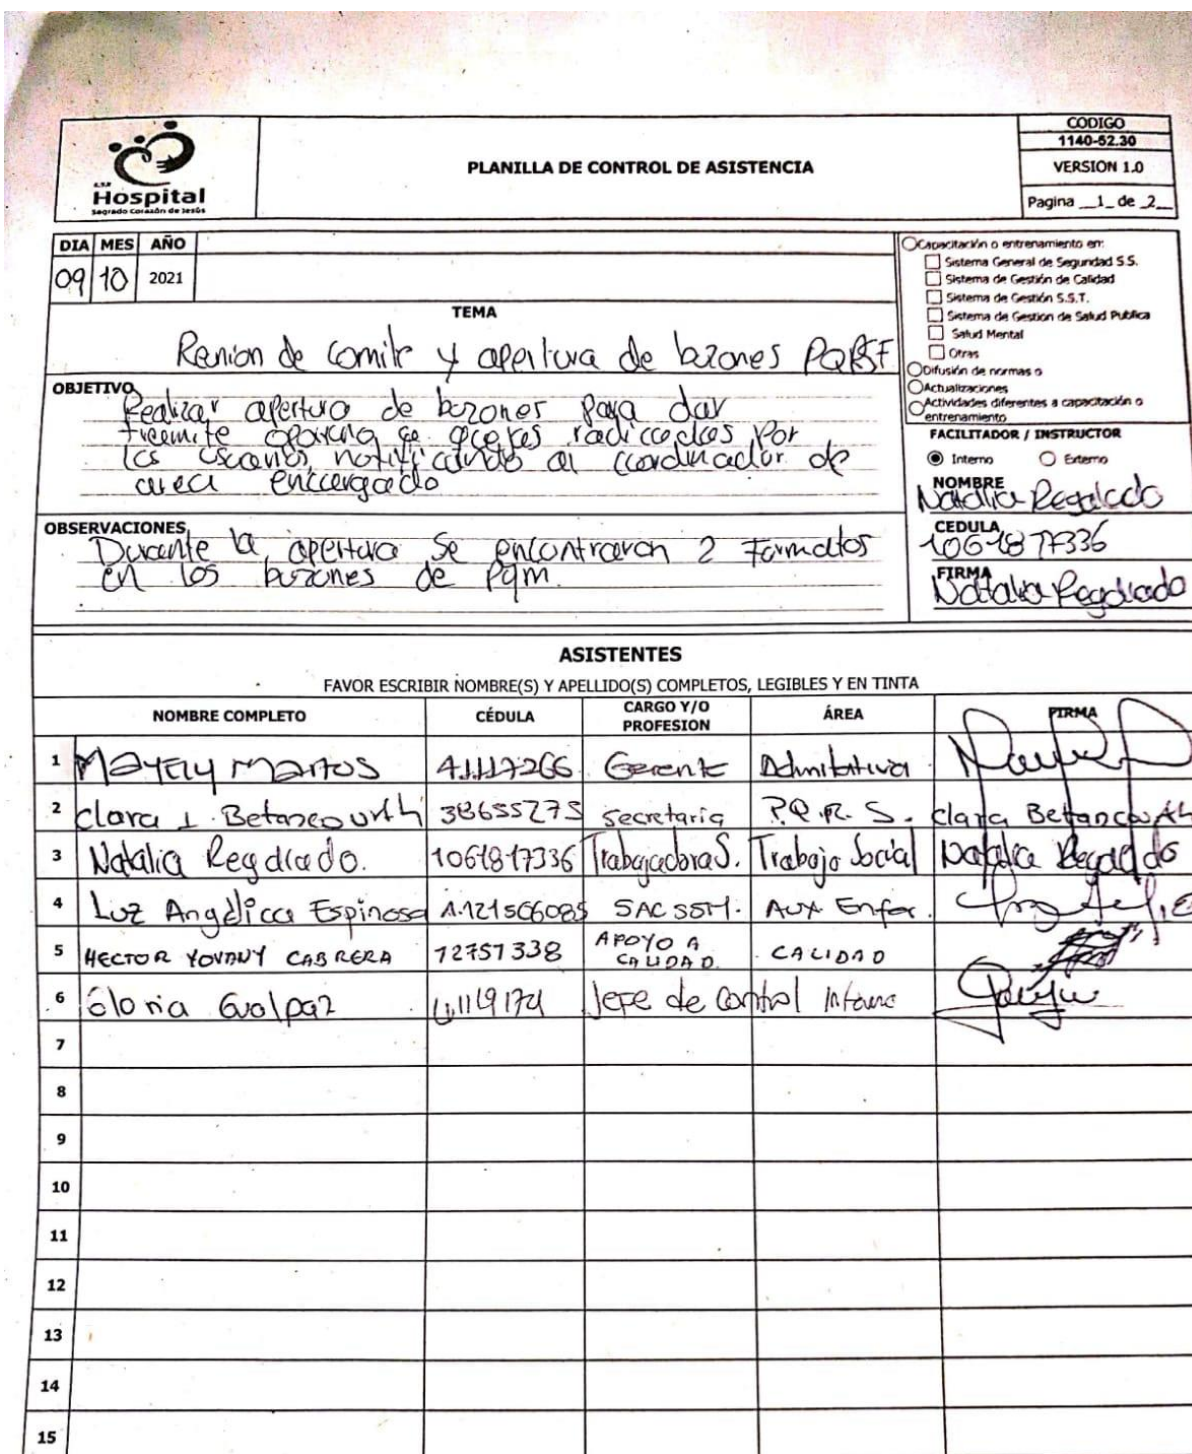 CODIGO
1140-52.30
VERSION 1.0
Pagina __1_ de _2__
ESE
Hospital
Sagrado Corazón de Jesús
PLANILLA DE CONTROL DE ASISTENCIA
DIA MES AÑO
09 10 2021
TEMA
Reunion de Comite y apertura de buzones PQRSF
OBJETIVO
Realizar apertura de buzones para dar
tramite de radicadas por
los usuarios, notificando al coordinador de
area encargado
OBSERVACIONES
Durante la apertura se encontraron 2 Formatos
en los buzones de pqm.
Capacitación o entrenamiento en:
Sistema General de Seguridad S.S.
Sistema de Gestión de Calidad
Sistema de Gestión S.S.T.
Sistema de Gestion de Salud Publica
Salud Mental
Otras
Difusión de normas o
Actualizaciones
Actividades diferentes a capacitación o
entrenamiento
FACILITADOR / INSTRUCTOR
Interno Externo
NOMBRE
Natalia Regalado
CEDULA
1061817336
FIRMA
Natalia Regalado
ASISTENTES
FAVOR ESCRIBIR NOMBRE(S) Y APELLIDO(S) COMPLETOS, LEGIBLES Y EN TINTA
NOMBRE COMPLETO CÉDULA CARGO Y/O PROFESION ÁREA FIRMA
1 Martos 41117266 Gerente
2 Clara I. Betancourth 38655275 secretaria P.Q.R.S. Clara Betancourth
3 Natalia Regalado. 1061817336 Trabajadora S. Trabajo Social Natalia Regalado
4 Luz Angelica Espinosa 1.121506085 SAC SSM. Aux Enfer.
5 HECTOR YOVANY CABRERA 12751338 APOYO A CALIDAD. CALIDAD
6 Gloria Gualpaz 41119174 Jefe de Control Interno
7
8
9
10
11
12
13
14
15